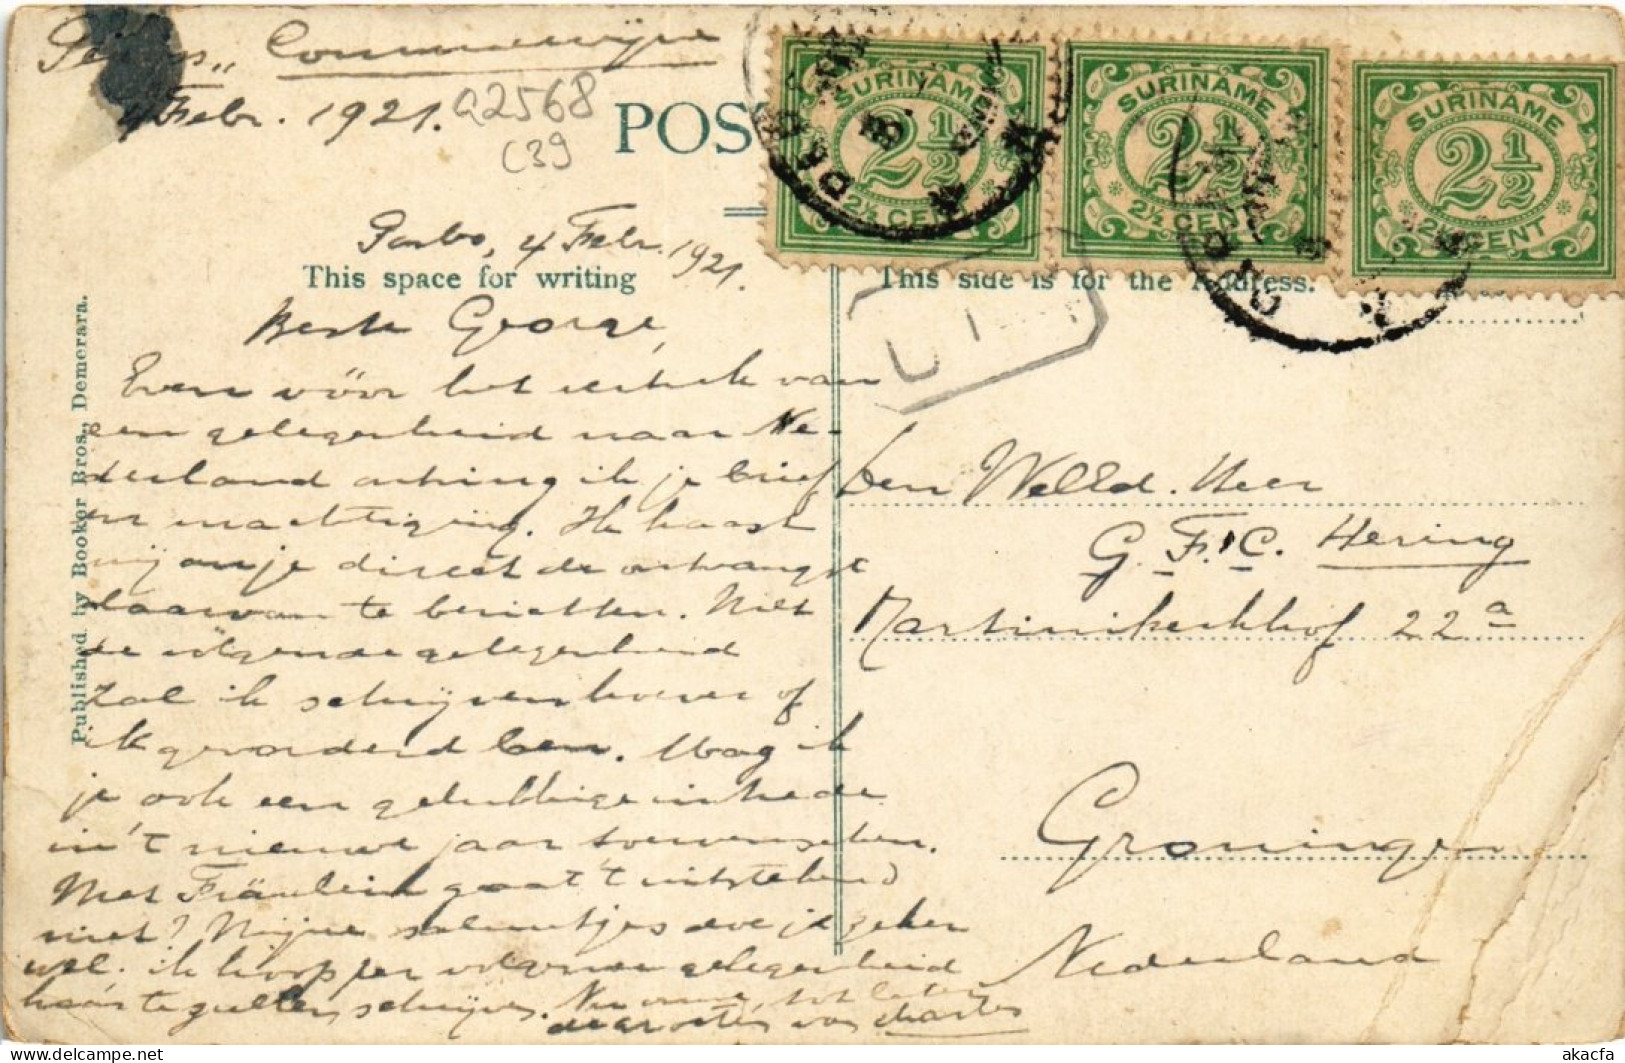 Commewijne
4 Febr. 1921.
a2568
C39
POS
SURINAME
2½
2½ CENT
SURINAME
2½
2½ CENT
SURINAME
2½
2½ CENT
Parbo, 4 Febr. 1921.
This space for writing
This side is for the Address.
Published by Booker Bros., Demerara.
Beste George,
Even vóór het vertrek van
een gelegenheid naar Ne-
derland ontving ik je brief
en machtiging. Ik haast
mij om je direct de ontvangst
daarvan te berichten. Met
de volgende gelegenheid
zal ik schrijven hoever of
ik gevorderd ben. Mag ik
je ook een gelukkige
in 't nieuwe jaar toewenschen.
Met Fräulein gaat 't uitstekend
niet? Mijne doe je zeker
wel. ik hoop per volgende gelegenheid
te schrijven. Nu tot later
de groeten van Charles
Den WelEd. Heer
G. F. C. Hering
Martinikerkhof 22a
Groningen
Nederland
akacfa